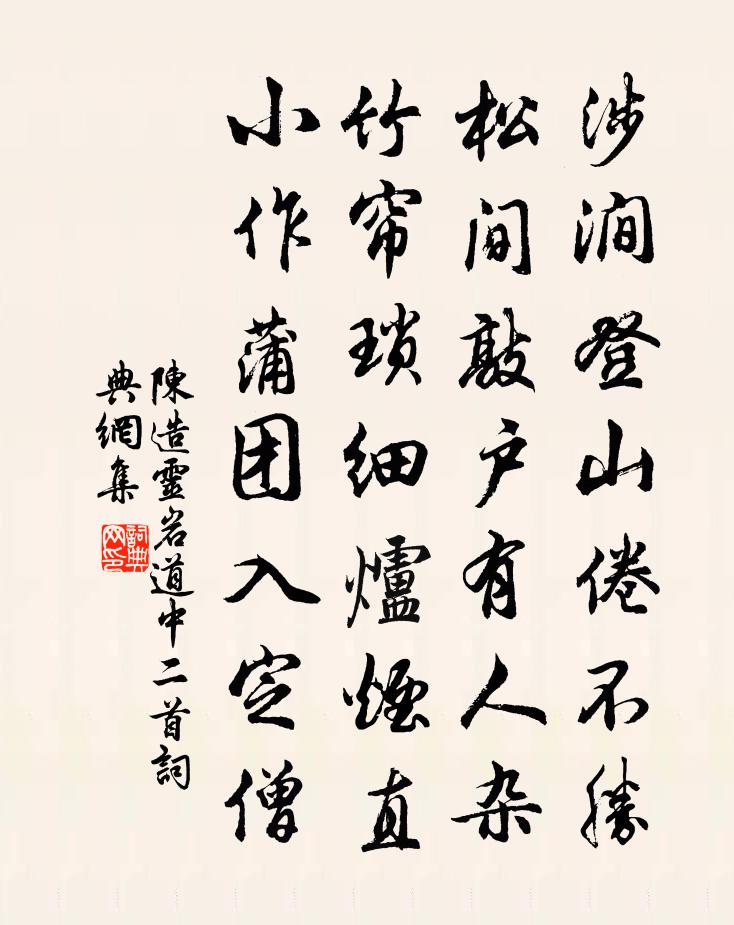 涉澗登山倦不勝
松间敲户有人杂
竹帘瑣细爐煙直
小作蒲团入定僧
陳造靈岩道中二首詞
典網集
詞典
网印